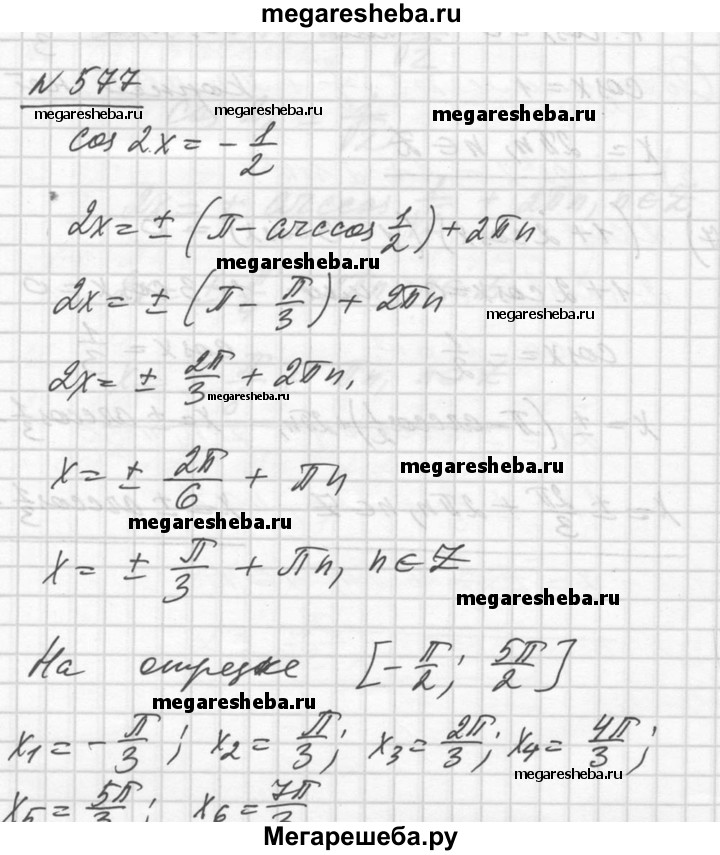 megaresheba.ru
N 577
megaresheba.ru megaresheba.ru megaresheba.ru
cos 2x = - 1/2
2x = ± (π - arccos 1/2) + 2πn
megaresheba.ru
2x = ± (π - π/3) + 2πn
megaresheba.ru
2x = ± 2π/3 + 2πn,
megaresheba.ru
x = ± 2π/6 + πn
megaresheba.ru
megaresheba.ru
x = ± π/3 + πn, n ∈ Z
megaresheba.ru
На отрезке [-π/2; 5π/2]
megaresheba.ru
x1 = -π/3; x2 = π/3; x3 = 2π/3; x4 = 4π/3;
megaresheba.ru
x5 = 5π/3; x6 = 7π/3
Мегарешеба.ру